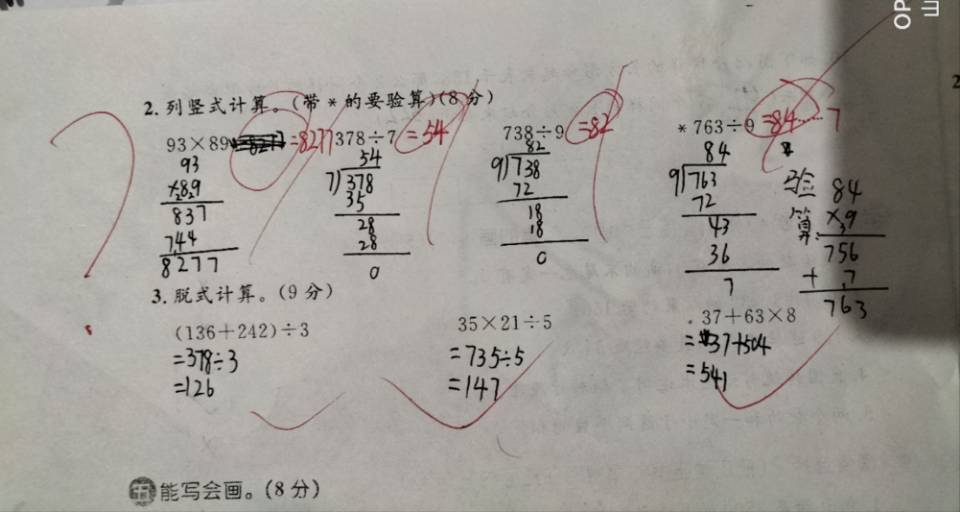 2. 列竖式计算。(带 * 的要验算)(8分)
93×89=8277 378÷7=54 738÷9=82 *763÷9=84……7
93
×89
837
744
8277
54
7)378
35
28
28
0
82
9)738
72
18
18
0
84
9)763
72
43
36
7
验算:
84
×9
756
+ 7
763
3. 脱式计算。(9分)
(136+242)÷3 35×21÷5 37+63×8
=378÷3 =735÷5 =37+504
=126 =147 =541
能写会画。(8分)
OP